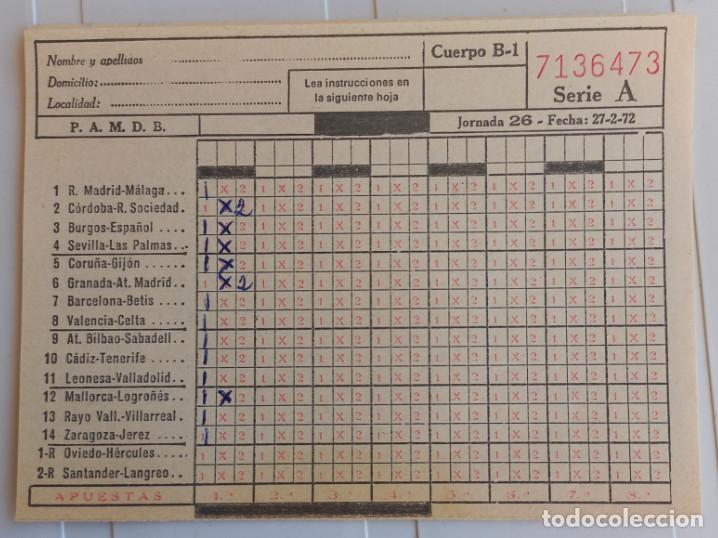 Nombre y apellidos
Domicilio:
Localidad:
Lea instrucciones en
la siguiente hoja
Cuerpo B-1
7136473
Serie A
P. A. M. D. B.
Jornada 26 - Fecha: 27-2-72
1 R. Madrid-Málaga... 1 X 2 1 X 2 1 X 2 1 X 2 1 X 2 1 X 2 1 X 2 1 X 2
2 Córdoba-R. Sociedad. 1 X 2 1 X 2 1 X 2 1 X 2 1 X 2 1 X 2 1 X 2 1 X 2
3 Burgos-Español .... 1 X 2 1 X 2 1 X 2 1 X 2 1 X 2 1 X 2 1 X 2 1 X 2
4 Sevilla-Las Palmas... 1 X 2 1 X 2 1 X 2 1 X 2 1 X 2 1 X 2 1 X 2 1 X 2
5 Coruña-Gijón ...... 1 X 2 1 X 2 1 X 2 1 X 2 1 X 2 1 X 2 1 X 2 1 X 2
6 Granada-At. Madrid.. 1 X 2 1 X 2 1 X 2 1 X 2 1 X 2 1 X 2 1 X 2 1 X 2
7 Barcelona-Betis .... 1 X 2 1 X 2 1 X 2 1 X 2 1 X 2 1 X 2 1 X 2 1 X 2
8 Valencia-Celta ..... 1 X 2 1 X 2 1 X 2 1 X 2 1 X 2 1 X 2 1 X 2 1 X 2
9 At. Bilbao-Sabadell.. 1 X 2 1 X 2 1 X 2 1 X 2 1 X 2 1 X 2 1 X 2 1 X 2
10 Cádiz-Tenerife ..... 1 X 2 1 X 2 1 X 2 1 X 2 1 X 2 1 X 2 1 X 2 1 X 2
11 Leonesa-Valladolid.. 1 X 2 1 X 2 1 X 2 1 X 2 1 X 2 1 X 2 1 X 2 1 X 2
12 Mallorca-Logroñés.. 1 X 2 1 X 2 1 X 2 1 X 2 1 X 2 1 X 2 1 X 2 1 X 2
13 Rayo Vall.-Villarreal . 1 X 2 1 X 2 1 X 2 1 X 2 1 X 2 1 X 2 1 X 2 1 X 2
14 Zaragoza-Jerez .... 1 X 2 1 X 2 1 X 2 1 X 2 1 X 2 1 X 2 1 X 2 1 X 2
1-R Oviedo-Hércules.... 1 X 2 1 X 2 1 X 2 1 X 2 1 X 2 1 X 2 1 X 2 1 X 2
2-R Santander-Langreo.. 1 X 2 1 X 2 1 X 2 1 X 2 1 X 2 1 X 2 1 X 2 1 X 2
APUESTAS 1.ª 2.ª 3.ª 4.ª 5.ª 6.ª 7.ª 8.ª
todocoleccion.net